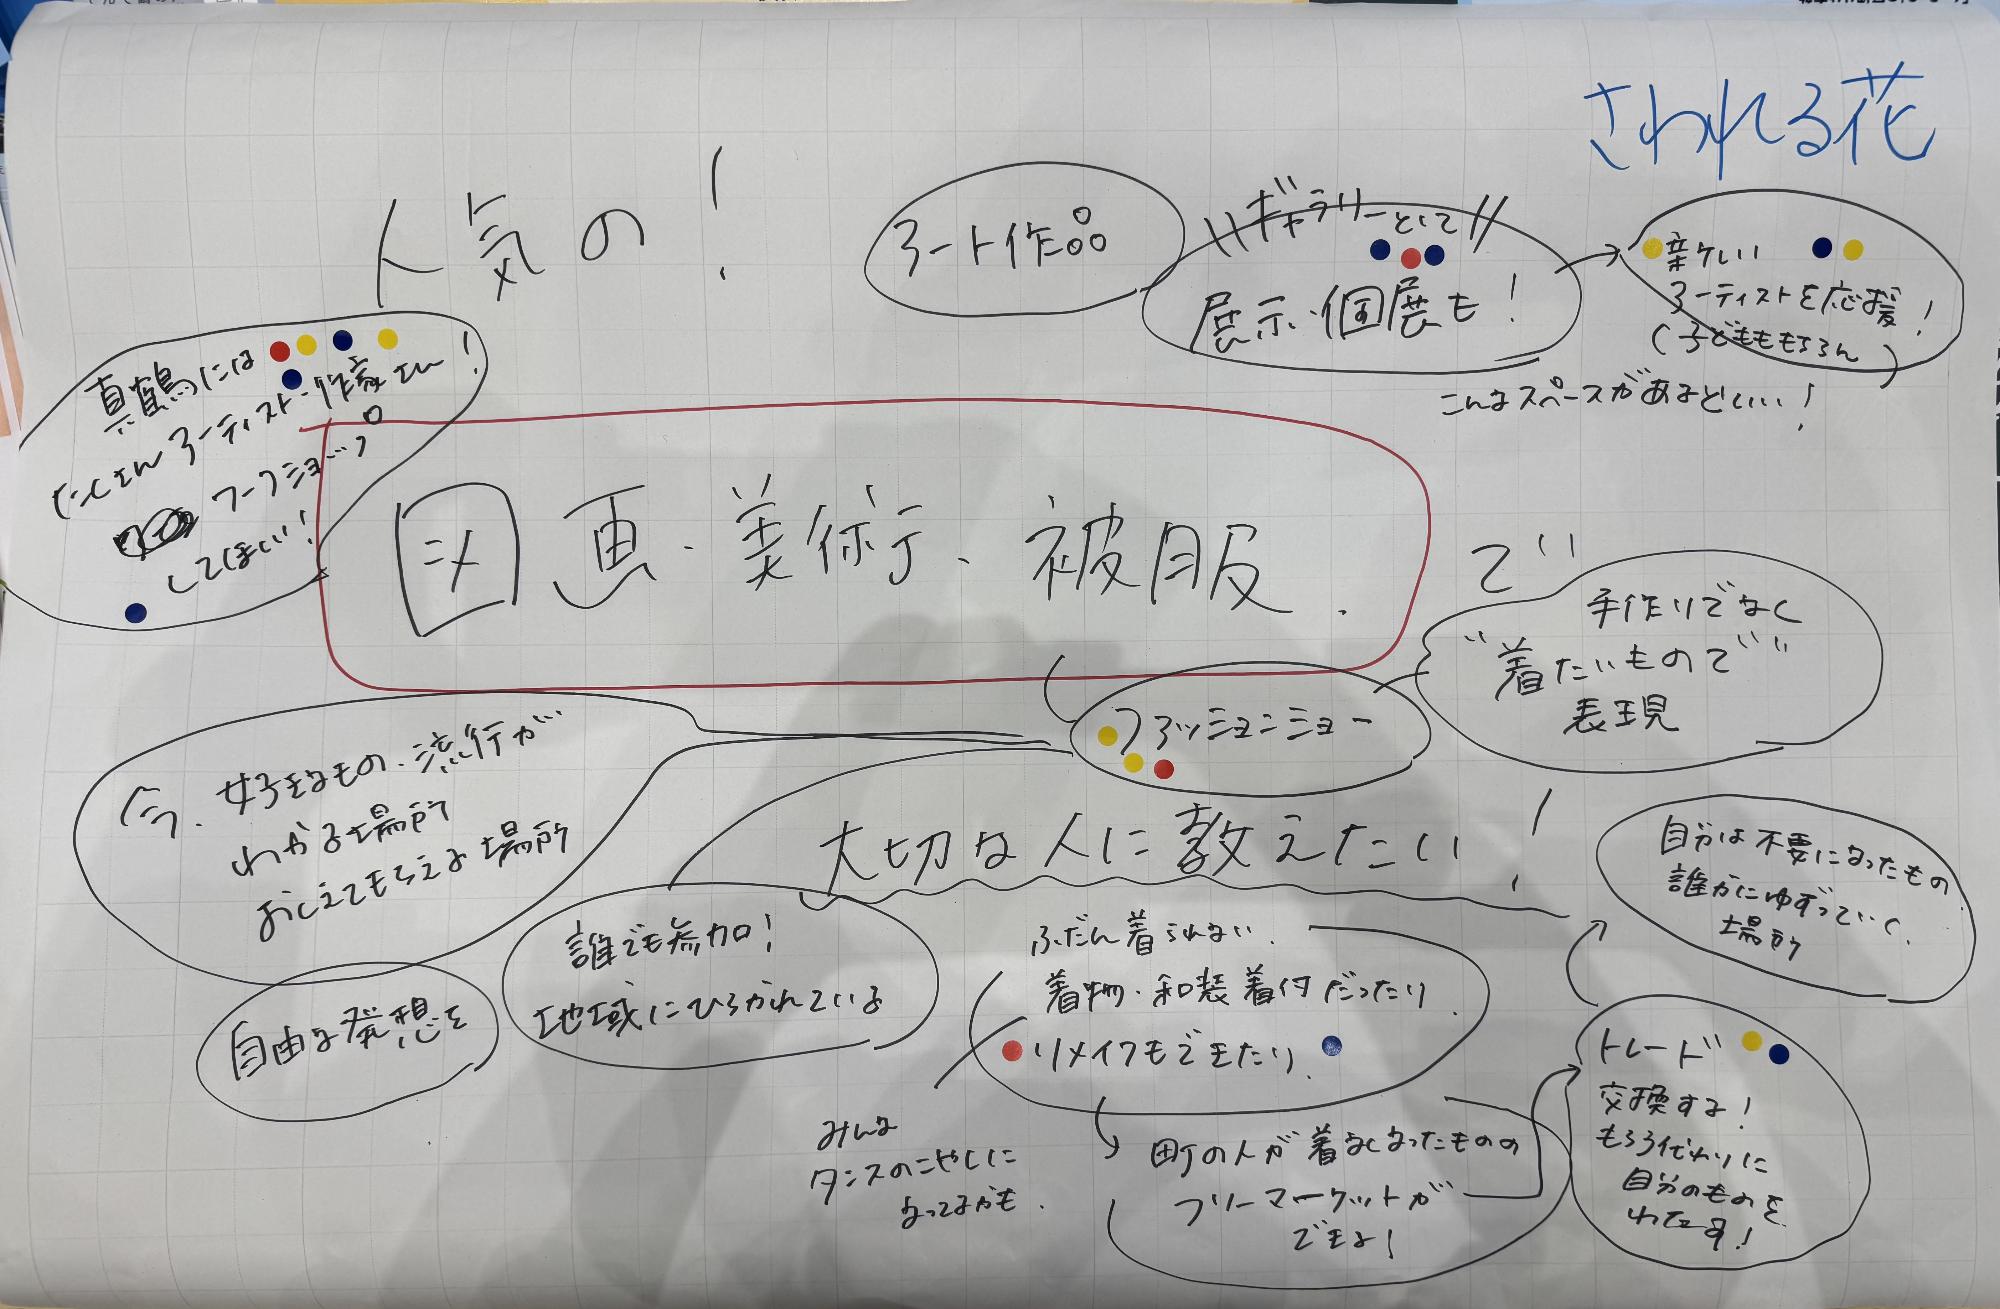 さわれる花
人気の!
アート作品
\\ギャラリーとして//
展示・個展も!
新しい
アーティストを応援!
(子どももちろん)
こんなスペースがあるといい!
真鶴には
たくさんアーティスト・作家さん!
ワークショップ
してほしい!
図画・美術・被服.
で
手作りでなく
"着たいもので"
表現
ファッションショー
今、好きなもの・流行が
わかる場所
おしえてもらえる場所
大切な人に教えたい!
自分は不要になったもの
誰かにゆずっていく
場所
誰でも参加!
地域にひらかれている
自由な発想を
ふだん着られない
着物・和装着付だったり
リメイクもできたり
みんな
タンスのこやしに
なってるかも.
町の人が着なくなったものの
フリーマーケットが
できる!
トレード
交換する!
もらう代わりに
自分のものを
わたす!